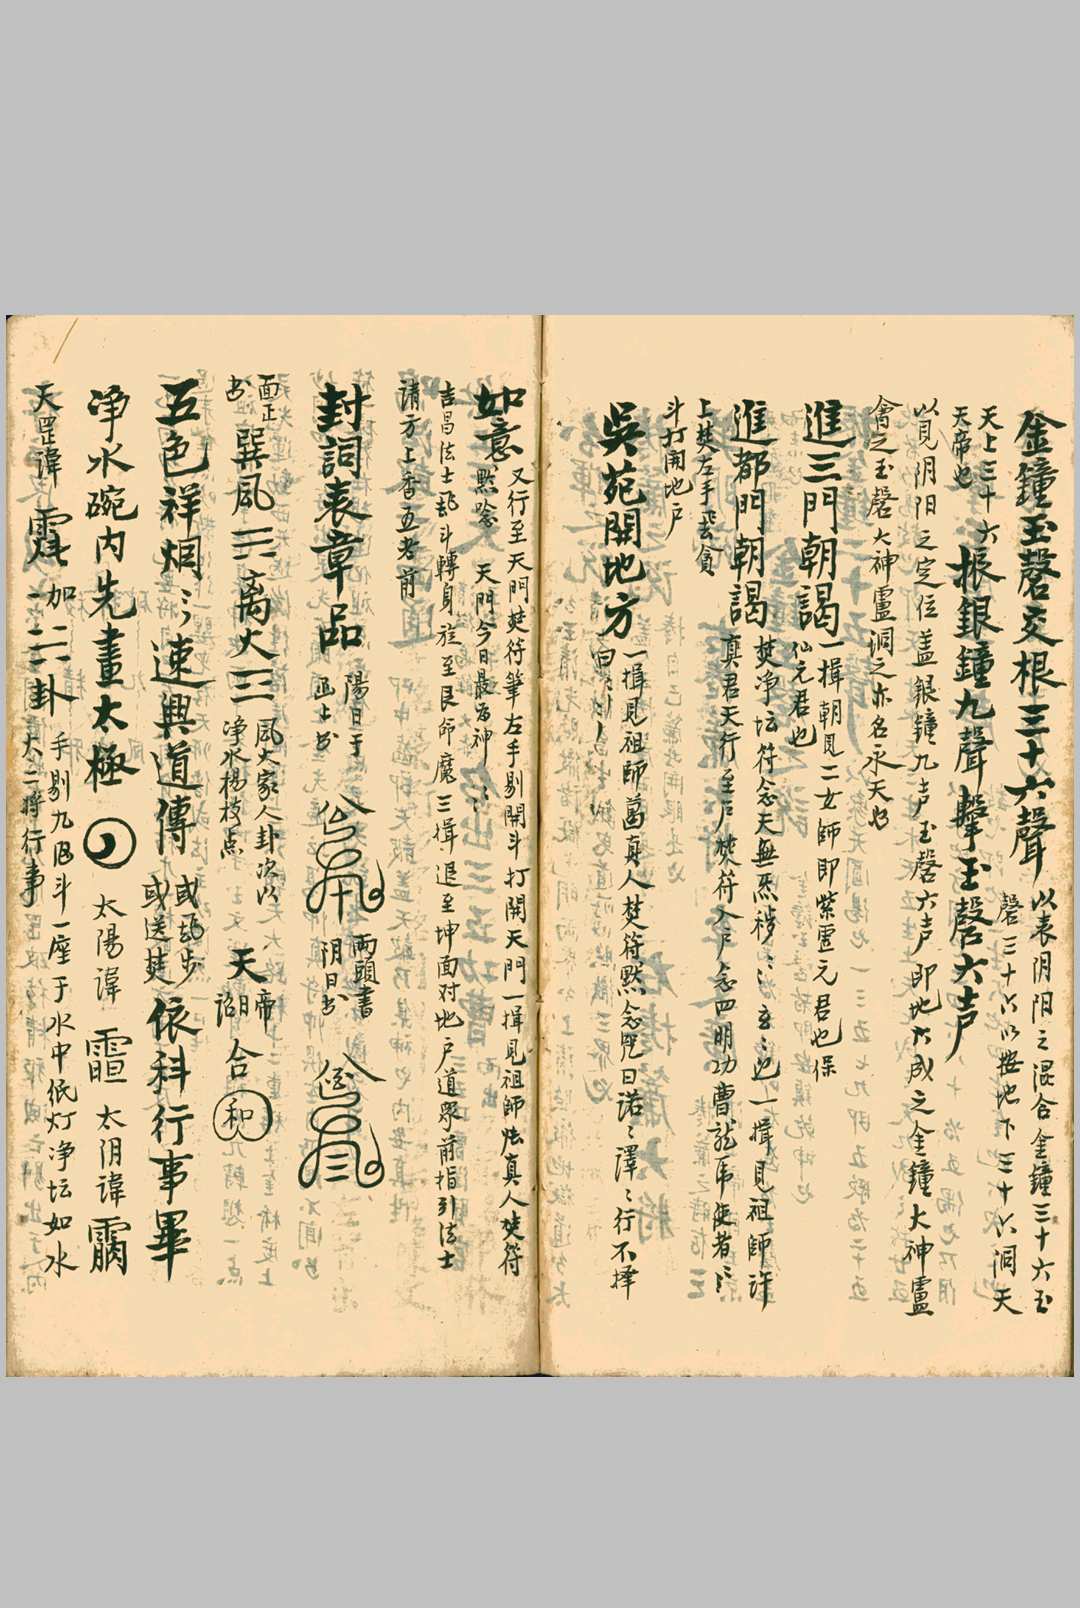 金鐘玉磬交根三十六聲
以表阴阳之混合金鐘三十六玉
磬三十六以按地下三十六洞天
天上三十六
天帝也
振銀鐘九聲擊玉磬六声
以見阴阳之定位盖銀鐘九声玉磬六声即地六成之金鐘大神盧
會之玉磬大神盧洞之亦名永天也
進三門朝謁
一揖朝見二女師即紫霊元君也保
仙元君也
進都門朝謁
焚净坛符念天無氛秽〻玄〻也一揖見祖師许
真君天行至户焚符入户念四明功曹龍虎使者〻
上焚左手貪
斗打開地户
吳苑開地方
一揖見祖師葛真人焚符默念咒曰诺〻譯〻行不择
曰
如意
又行至天門焚符筆左手剔開斗打開天門一揖見祖師真人焚符
默唸 天門今日最為神〻
吉昌法士斗轉身於至艮命魔三揖退至坤面对地户道眾前指引法士
请方上香五老前
封詞表章品
陽日于
函上书
兩頭書
阴日书
面正
书
巽風☴離火☲
風火家人卦次以
净水楊枝点
天
帝
诏
合
和
五色祥烟〻速興道傳
或步
或送焚
依科行事畢
净水碗内先畫太極
太陽諱 太阴諱
天罡諱 加 卦
手剔九斗一座于水中纸灯净坛如水
大二将行事